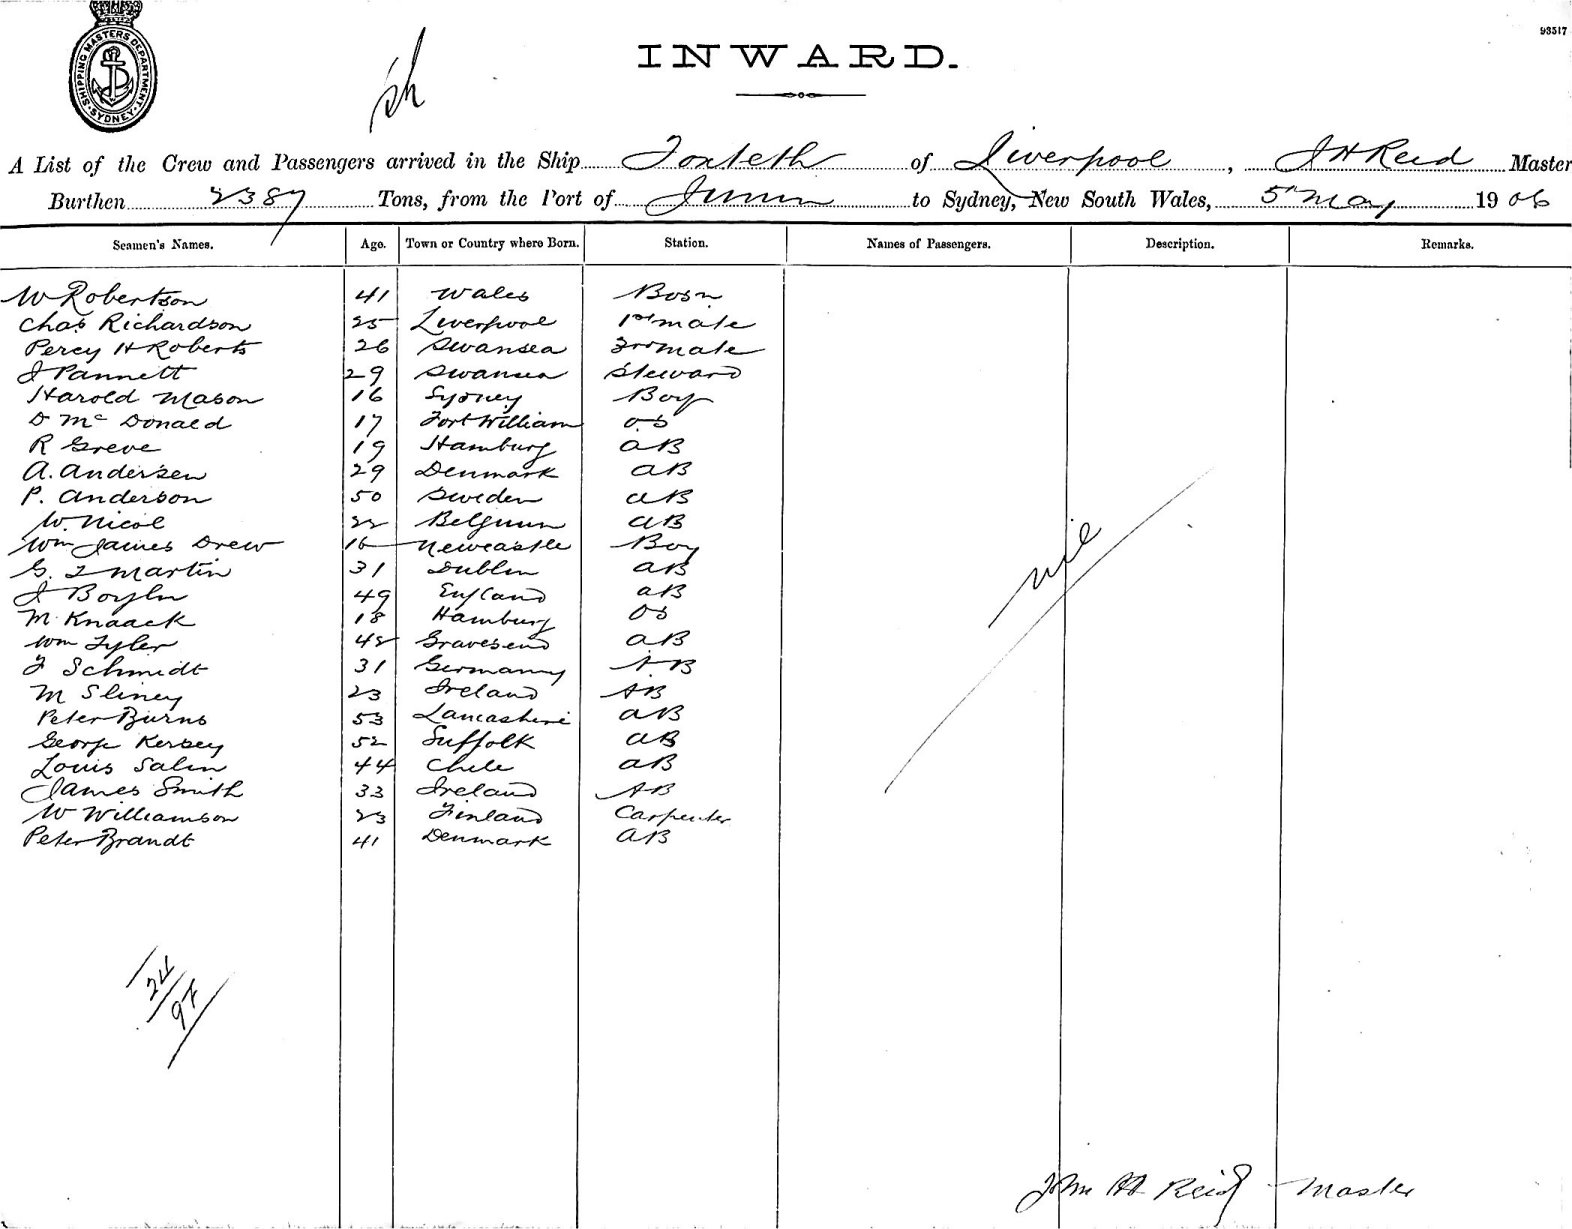 93517
SHIPPING MASTERS DEPARTMENT
SYDNEY
INWARD.
A List of the Crew and Passengers arrived in the Ship Toxteth of Liverpool, J H Reid Master
Burthen 2387 Tons, from the Port of Junin to Sydney, New South Wales, 5th May 1906
Seamen's Names. Age. Town or Country where Born. Station. Names of Passengers. Description. Remarks.
W Robertson 41 Wales Bosn
Chas Richardson 25 Liverpool 1st mate
Percy H Roberts 26 Swansea 3rd mate
J Pannett 29 Swansea Steward
Harold Mason 16 Sydney Boy
D McDonald 17 Fort William OS
R Greve 19 Hamburg AB
A. Andersen 29 Denmark AB
P. Anderson 50 Sweden AB
W. Nicol 22 Belgium AB
Wm James Drew 16 Newcastle Boy
G. T Martin 31 Dublin AB
J Boyln 49 England AB
M Knaack 18 Hamburg OS
Wm Tyler 48 Gravesend AB
F Schmidt 31 Germany AB
M Sliney 23 Ireland AB
Peter Burns 53 Lancashire AB
George Kersey 52 Suffolk AB
Louis Salin 44 Chile AB
James Smith 33 Ireland AB
W Williamson 23 Finland Carpenter
Peter Brandt 41 Denmark AB
nil
24
97
John H Reid Master